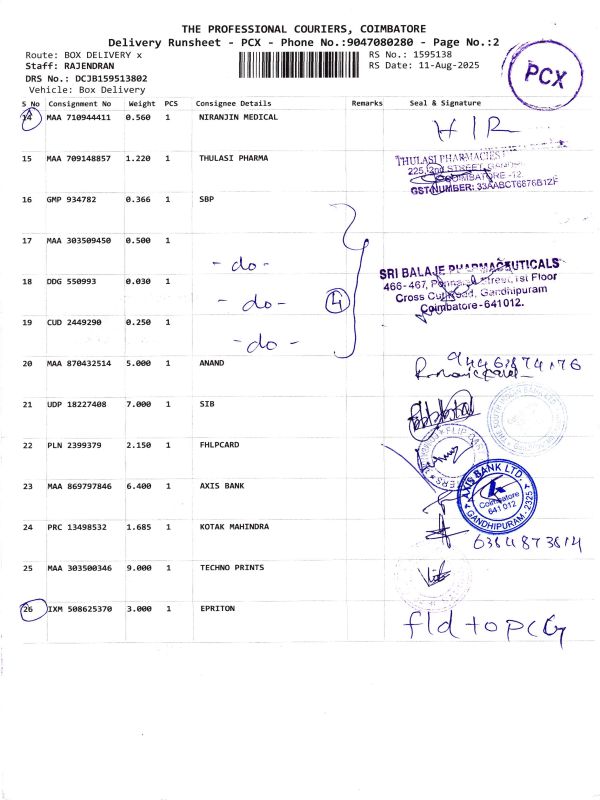 THE PROFESSIONAL COURIERS, COIMBATORE
Delivery Runsheet - PCX - Phone No.:9047080280 - Page No.:2
Route: BOX DELIVERY x
RS No.: 1595138
Staff: RAJENDRAN
RS Date: 11-Aug-2025
DRS No.: DCJB159513802
Vehicle: Box Delivery
PCX
S No Consignment No Weight PCS Consignee Details Remarks Seal & Signature
14 MAA 710944411 0.560 1 NIRANJIN MEDICAL
H I R
15 MAA 709148857 1.220 1 THULASI PHARMA
THULASI PHARMACIES
225, 2nd STREET,
COIMBATORE -12.
GST NUMBER: 33AABCT6876B1ZF
16 GMP 934782 0.366 1 SBP
17 MAA 303509450 0.500 1
- do -
18 DDG 550993 0.030 1
- do - 4
19 CUD 2449290 0.250 1
- do -
SRI BALAJE PHARMACEUTICALS
466-467, Street, Ist Floor
Cross Cut Road, Gandhipuram
Coimbatore-641012.
20 MAA 870432514 5.000 1 ANAND
21 UDP 18227408 7.000 1 SIB
22 PLN 2399379 2.150 1 FHLPCARD
23 MAA 869797846 6.400 1 AXIS BANK
AXIS BANK LTD.
Coimbatore
641 012
GANDHIPURAM - 2325
24 PRC 13498532 1.685 1 KOTAK MAHINDRA
6364873614
25 MAA 303500346 9.000 1 TECHNO PRINTS
26 IXM 508625370 3.000 1 EPRITON
fld to PCG